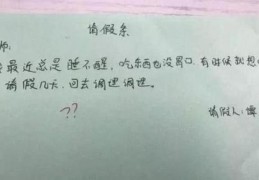 请假条
师:
最近总是睡不醒,吃东西也没胃口,有时候就想
请假几天,回去调理调理。
??
请假人:谭